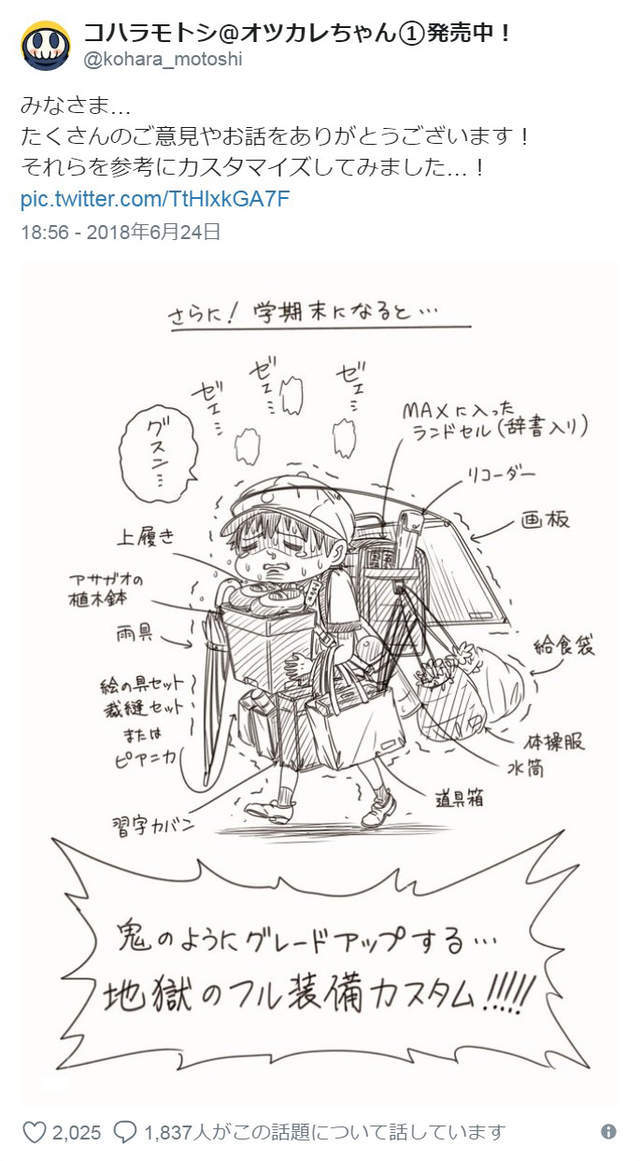 コハラモトシ@オツカレちゃん①発売中！
@kohara_motoshi
みなさま…
たくさんのご意見やお話をありがとうございます！
それらを参考にカスタマイズしてみました…！
pic.twitter.com/TtHlxkGA7F
18:56 - 2018年6月24日
さらに！学期末になると…
ゼェ…
ゼェ…
ゼェ…
グスン…
MAXに入った
ランドセル(辞書入り)
リコーダー
画板
上履き
アサガオの
植木鉢
雨具
給食袋
絵の具セット
裁縫セット
または
ピアニカ
体操服
水筒
道具箱
習字カバン
鬼のようにグレードアップする…
地獄のフル装備カスタム!!!!!
2,025
1,837人がこの話題について話しています